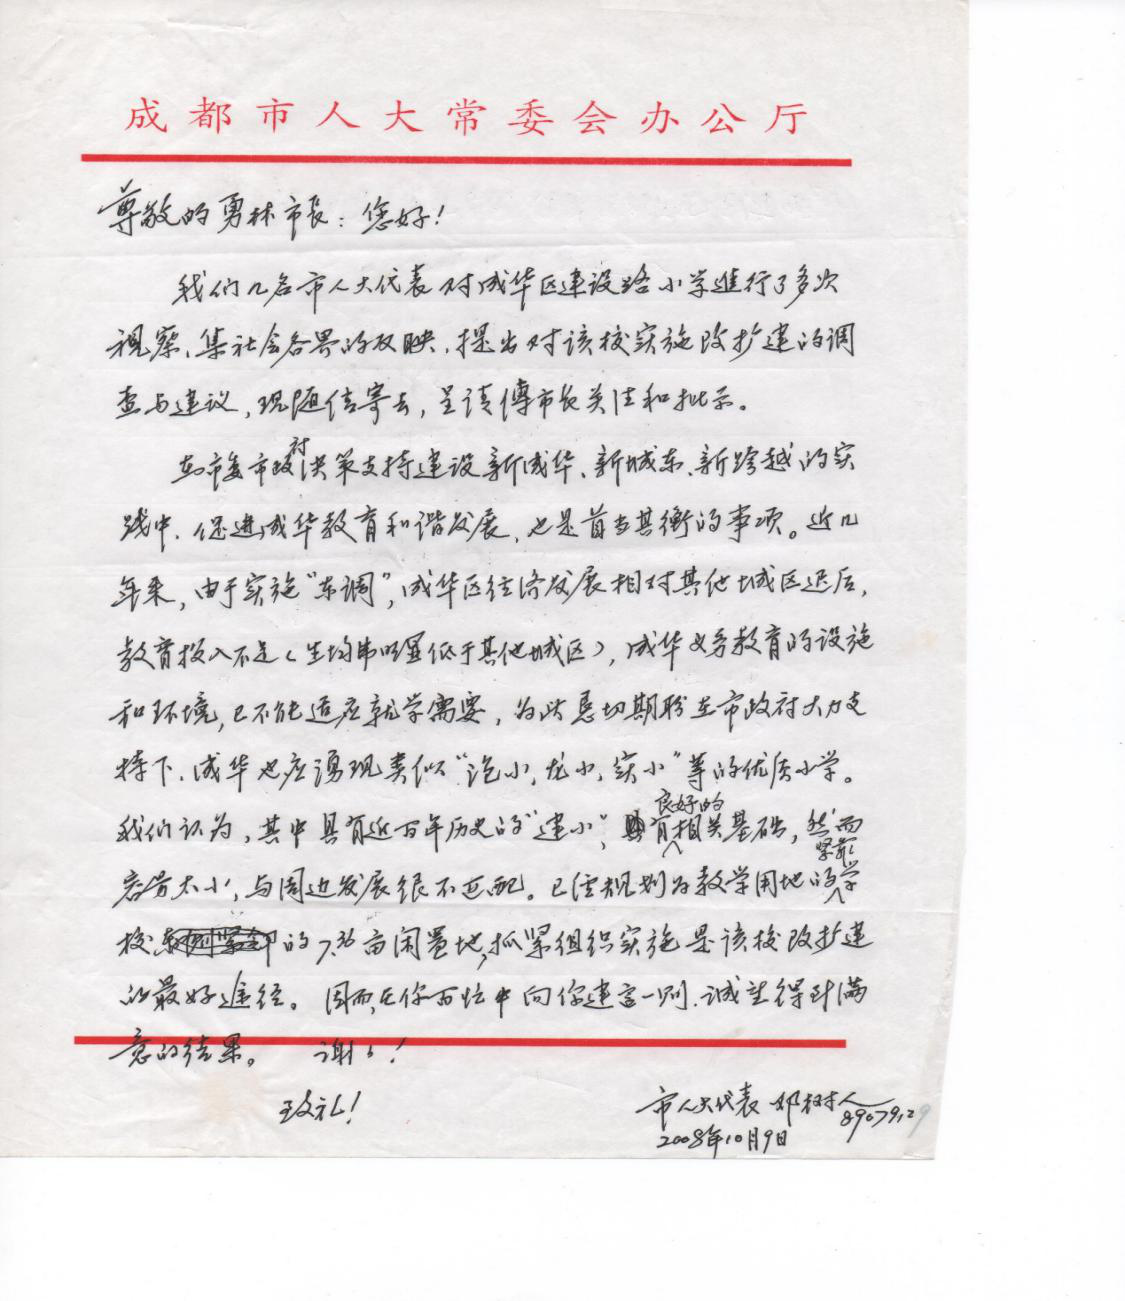 成都市人大常委会办公厅
尊敬的勇林市长：您好！
我们几名市人大代表对成华区建设路小学进行了多次
视察、集社会各界的反映，提出对该校实施改扩建的调
查与建议，现随信寄去，呈请傅市长关注和批示。
在市委市政府决策支持建设新成华、新城东、新跨越的实
践中，促进成华教育和谐发展，也是首当其衡的事项。近几
年来，由于实施“东调”，成华区经济发展相对其他城区迟后，
教育投入不足（生均币明显低于其他城区），成华义务教育的设施
和环境，已不能适应就学需要，为此恳切期盼在市政府大力支
持下，成华也应涌现类似“泡小，龙小，实小”等的优质小学。
我们认为，其中具有近百年历史的“建小”，具有良好的相关基础，然而
容量太小，与周边发展很不匹配。已经规划为教学用地的紧靠学
校的7.36亩闲置地，抓紧组织实施是该校改扩建
的最好途径。因而，在你百忙中向你建言一则，诚望得到满
意的结果。 谢谢！
致礼！
市人大代表 邓树人
89079129
2008年10月9日